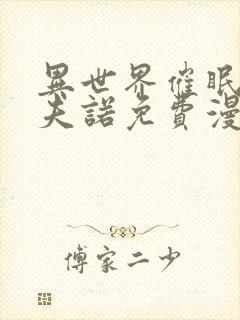 異世界催眠
夫諾免費漫
傅家二少